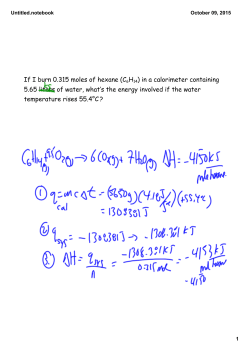 Untitled.notebook
October 09, 2015
If I burn 0.315 moles of hexane (C₆H₁₄) in a calorimeter containing
5.65 of water, what's the energy involved if the water
temperature rises 55.4°C?
ΔH = -4150kJ
① q = mcΔt = (5650g)(4.18J/g°C)(+55.4°C)
cal
= 1308381J
② q = -1308381J → -1308.381kJ
sys
③ ΔH = q sys / n = -1308.381kJ / 0.315mol = -4153kJ
-4150
1